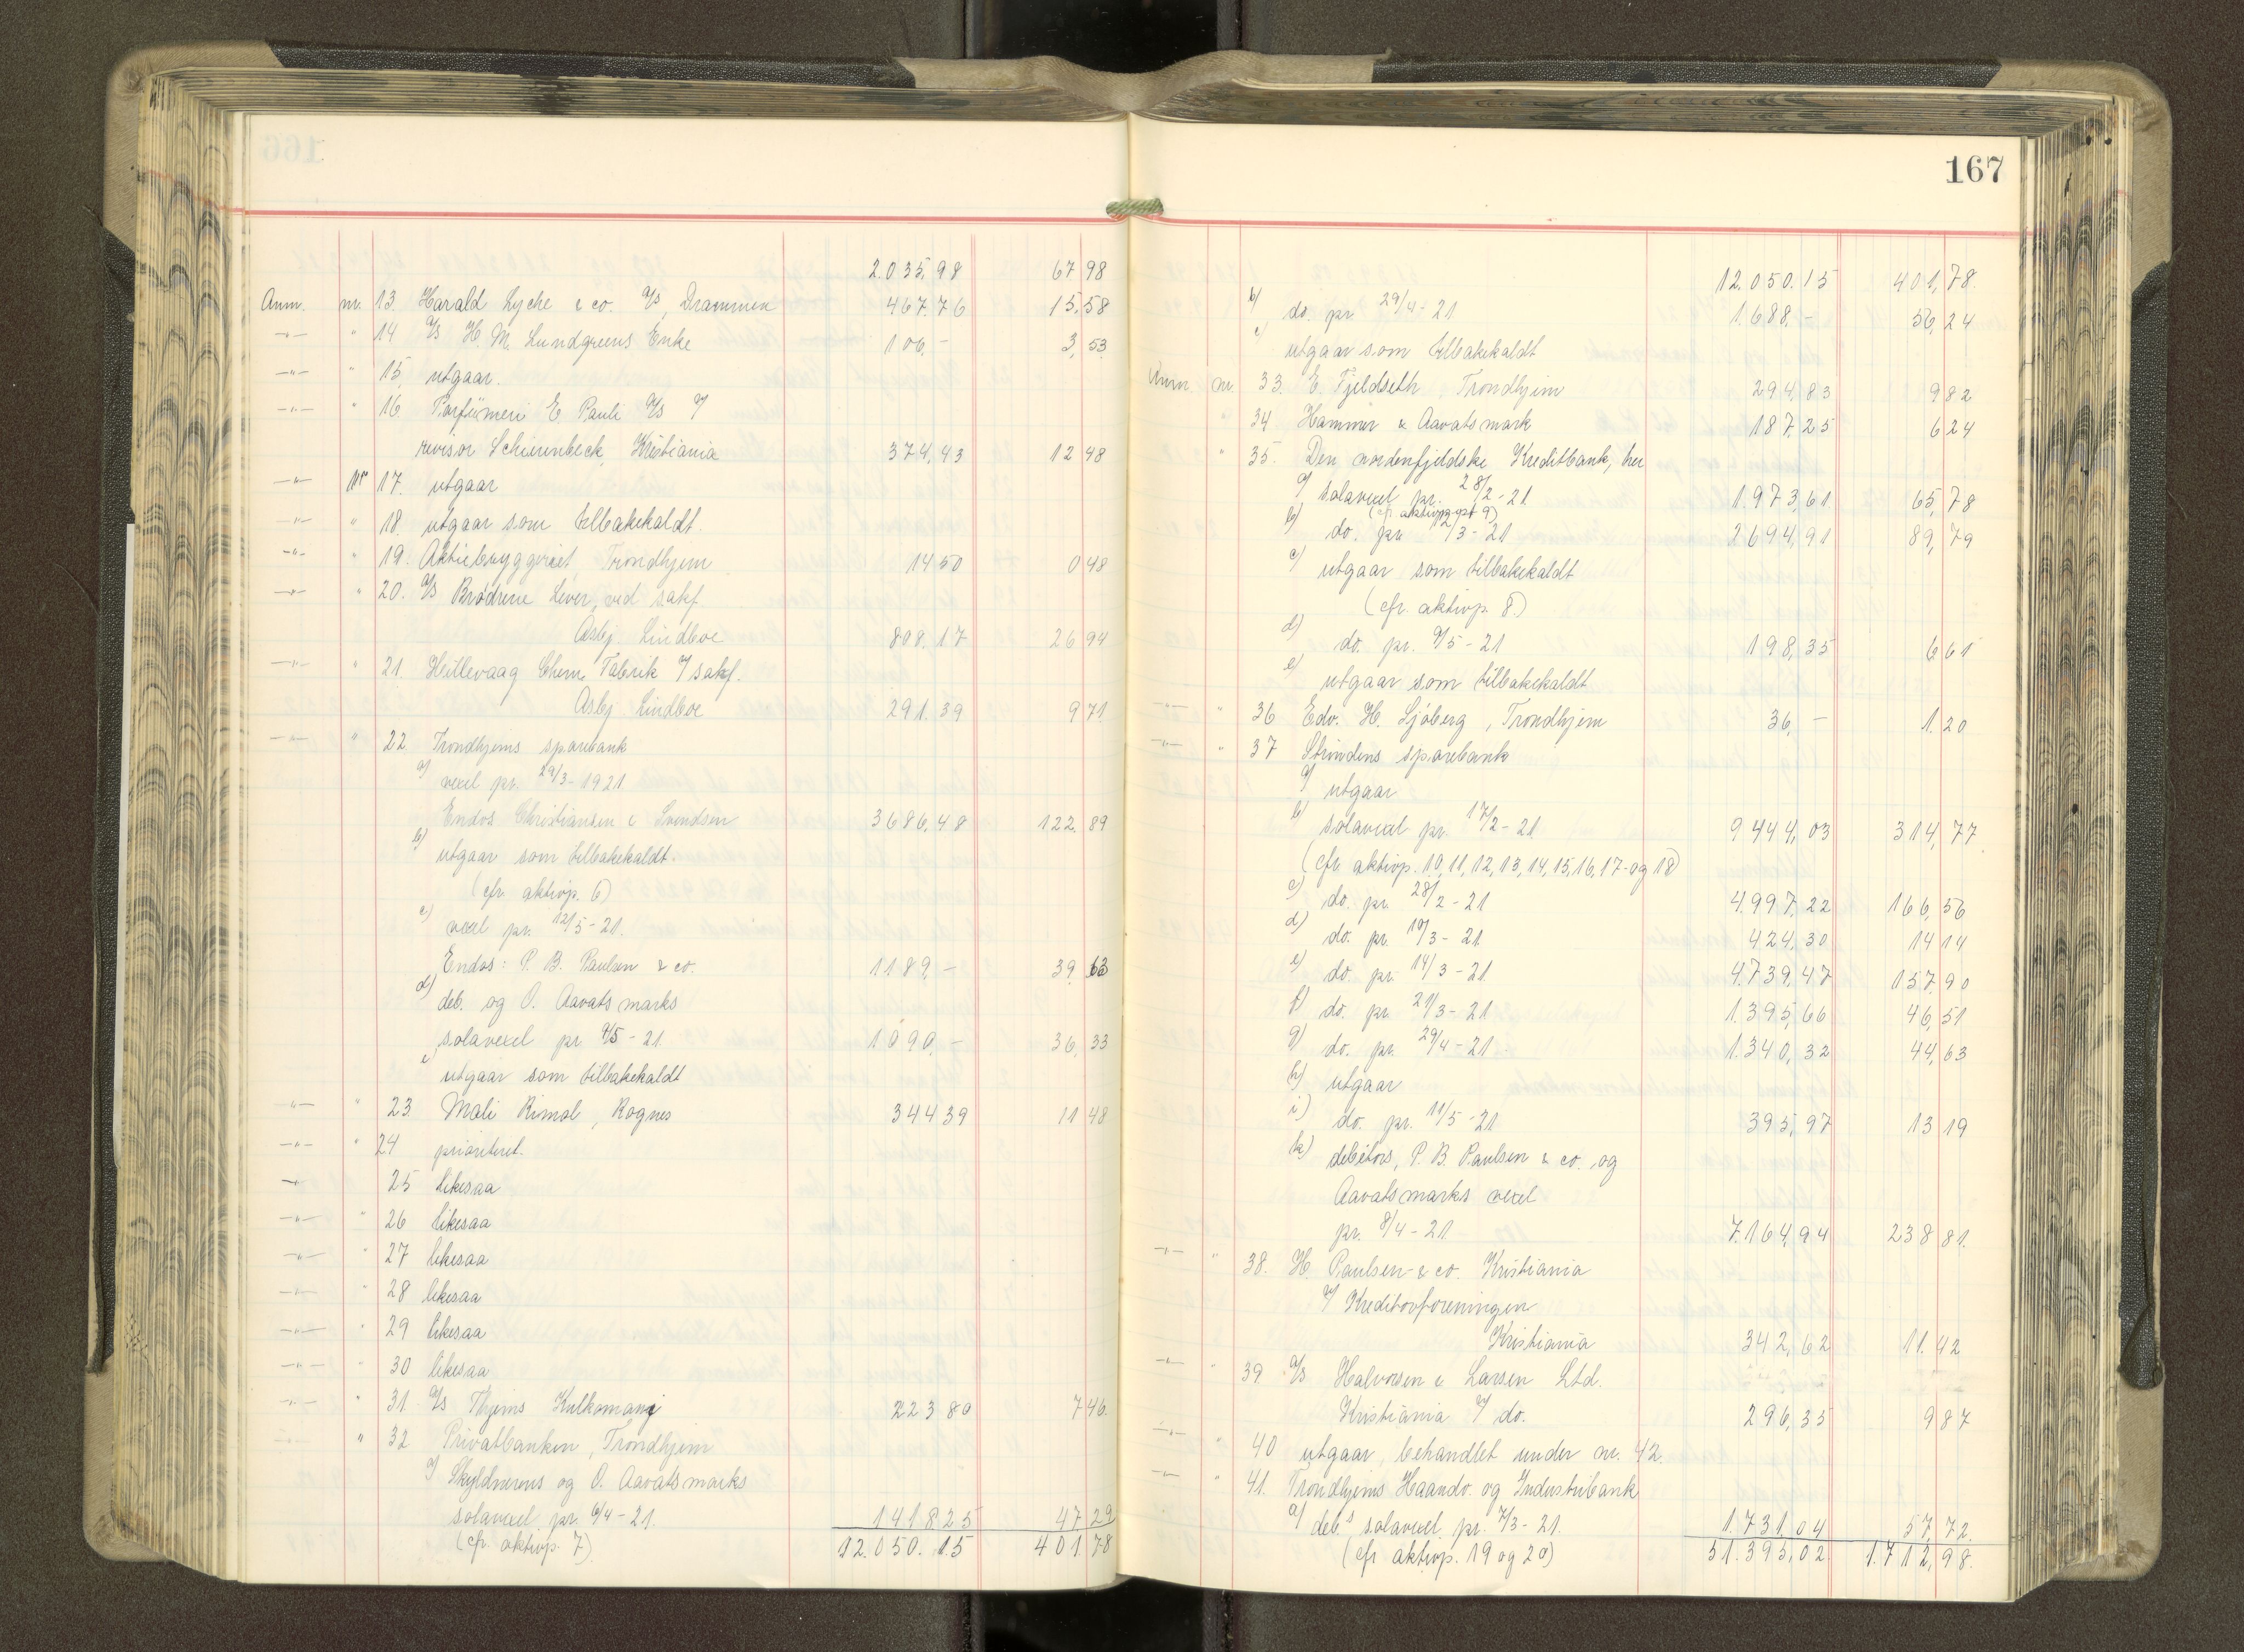 2.035,98 67 98
Anm. nr. 13 Harald Lyche & co. A/s, Drammen 467.76 15.58
—"— " 14 A/s H. M. Lundgreens Enke 106,- 3,53
—"— " 15 utgaar.
—"— " 16 Parfümeri E. Pauli A/s v/
revisor Schierenbeck, Kristiania 374,43 12 48
—"— nr 17. utgaar
—"— " 18. utgaar som tilbakekaldt.
—"— " 19. Aktiebryggeriet, Trondhjem 14 50 0 48
—"— " 20. A/s Brødrene Lever, ved sakf.
Asbj. Lindboe 808.17 26 94
—"— " 21. Hillevaag Chem. Fabrik v/ sakf.
Asbj Lindboe 291.39 9 71
—"— " 22. Trondhjems sparebank
a) vexel pr. 29/3-1921
Endos Christiansen & Svendsen 3686,48 122.89
b) utgaar som tilbakekaldt.
(cfr. aktivp. 6)
c) vexel pr. 12/5-21.
Endos: P. B. Paulsen & co. 1189,- 39.63
d) deb. og O. Aavatsmarks
solavexel pr. 9/5-21. 1090,- 36,33
e) utgaar som tilbakekaldt
—"— " 23 Mali Rimol, Rognes 344 39 11 48
—"— " 24 prioritert.
—"— 25 likesaa
—"— " 26 likesaa
—"— " 27 likesaa
—"— " 28 likesaa
—"— " 29 likesaa
—"— " 30 likesaa
—"— " 31 A/s Thjems Kulkompani 223 80 7 46.
" 32 Privatbanken, Trondhjem
a) Skyldnerens og O. Aavatsmarks
solavexel pr. 6/4-21. 1418 25 47 29
(cfr. aktivp. 7) 12.050.15 401.78
167
12.050.15 401,78.
b) do. pr. 29/4-21 1.688,- 56,24
c) utgaar som tilbakekaldt
Anm. nr. 33. E. Fjeldseth, Trondhjem 294,83 9 82
" 34 Hammer & Aavatsmark 187,25 6 24
" 35. Den nordenfjeldske Kreditbank, her
a) solavexel pr. 28/2-21. 1.973,61 65,78
(cfr. aktivpost 9)
b) do. pr. /3-21 2.694,91 89,79
c) utgaar som tilbakekaldt
(cfr. aktivp. 8.)
d) do. pr. 9/5-21 198,35 6,61
e) utgaar som tilbakekaldt
—"— " 36 Edv. H. Sjöberg, Trondhjem 36,- 1.20
—"— " 37 Strindens sparebank
a) utgaar
b) solavexel pr. 17/2-21. 9.444,03 314,77
(cfr. aktivp. 10, 11, 12, 13, 14, 15, 16, 17 og 18)
c) do. pr. 28/2-21 4.997,22 166,56
d) do. pr. 10/3-21. 424,30 14 14
e) do. pr. 14/3-21. 4.739,47 157,90
f) do. pr. 21/3-21 1.395,66 46,51
g) do. pr. 29/4-21 1.340,32 44,63
h) utgaar
i) do. pr. 11/5-21 395,97 13 19
k) debitors, P. B. Paulsen & co. og
Aavatsmarks vexel
pr. 8/4-21 7.164,94 238 81.
—"— " 38. H. Paulsen & co. Kristiania
v/ Kreditorforeningen
Kristiania 342,62 11.42
—"— " 39 A/s Halvorsen & Larsen Ltd.
Kristiania v/ do. 296,35 9 87
—"— " 40 utgaar, behandlet under nr. 42.
—"— " 41. Trondhjems Haandv. og Industribank
a) deb.s solavexel pr. 7/3-21. 1.731,04 57,72.
(cfr aktivp. 19 og 20) 51.395,02 1.712,98.